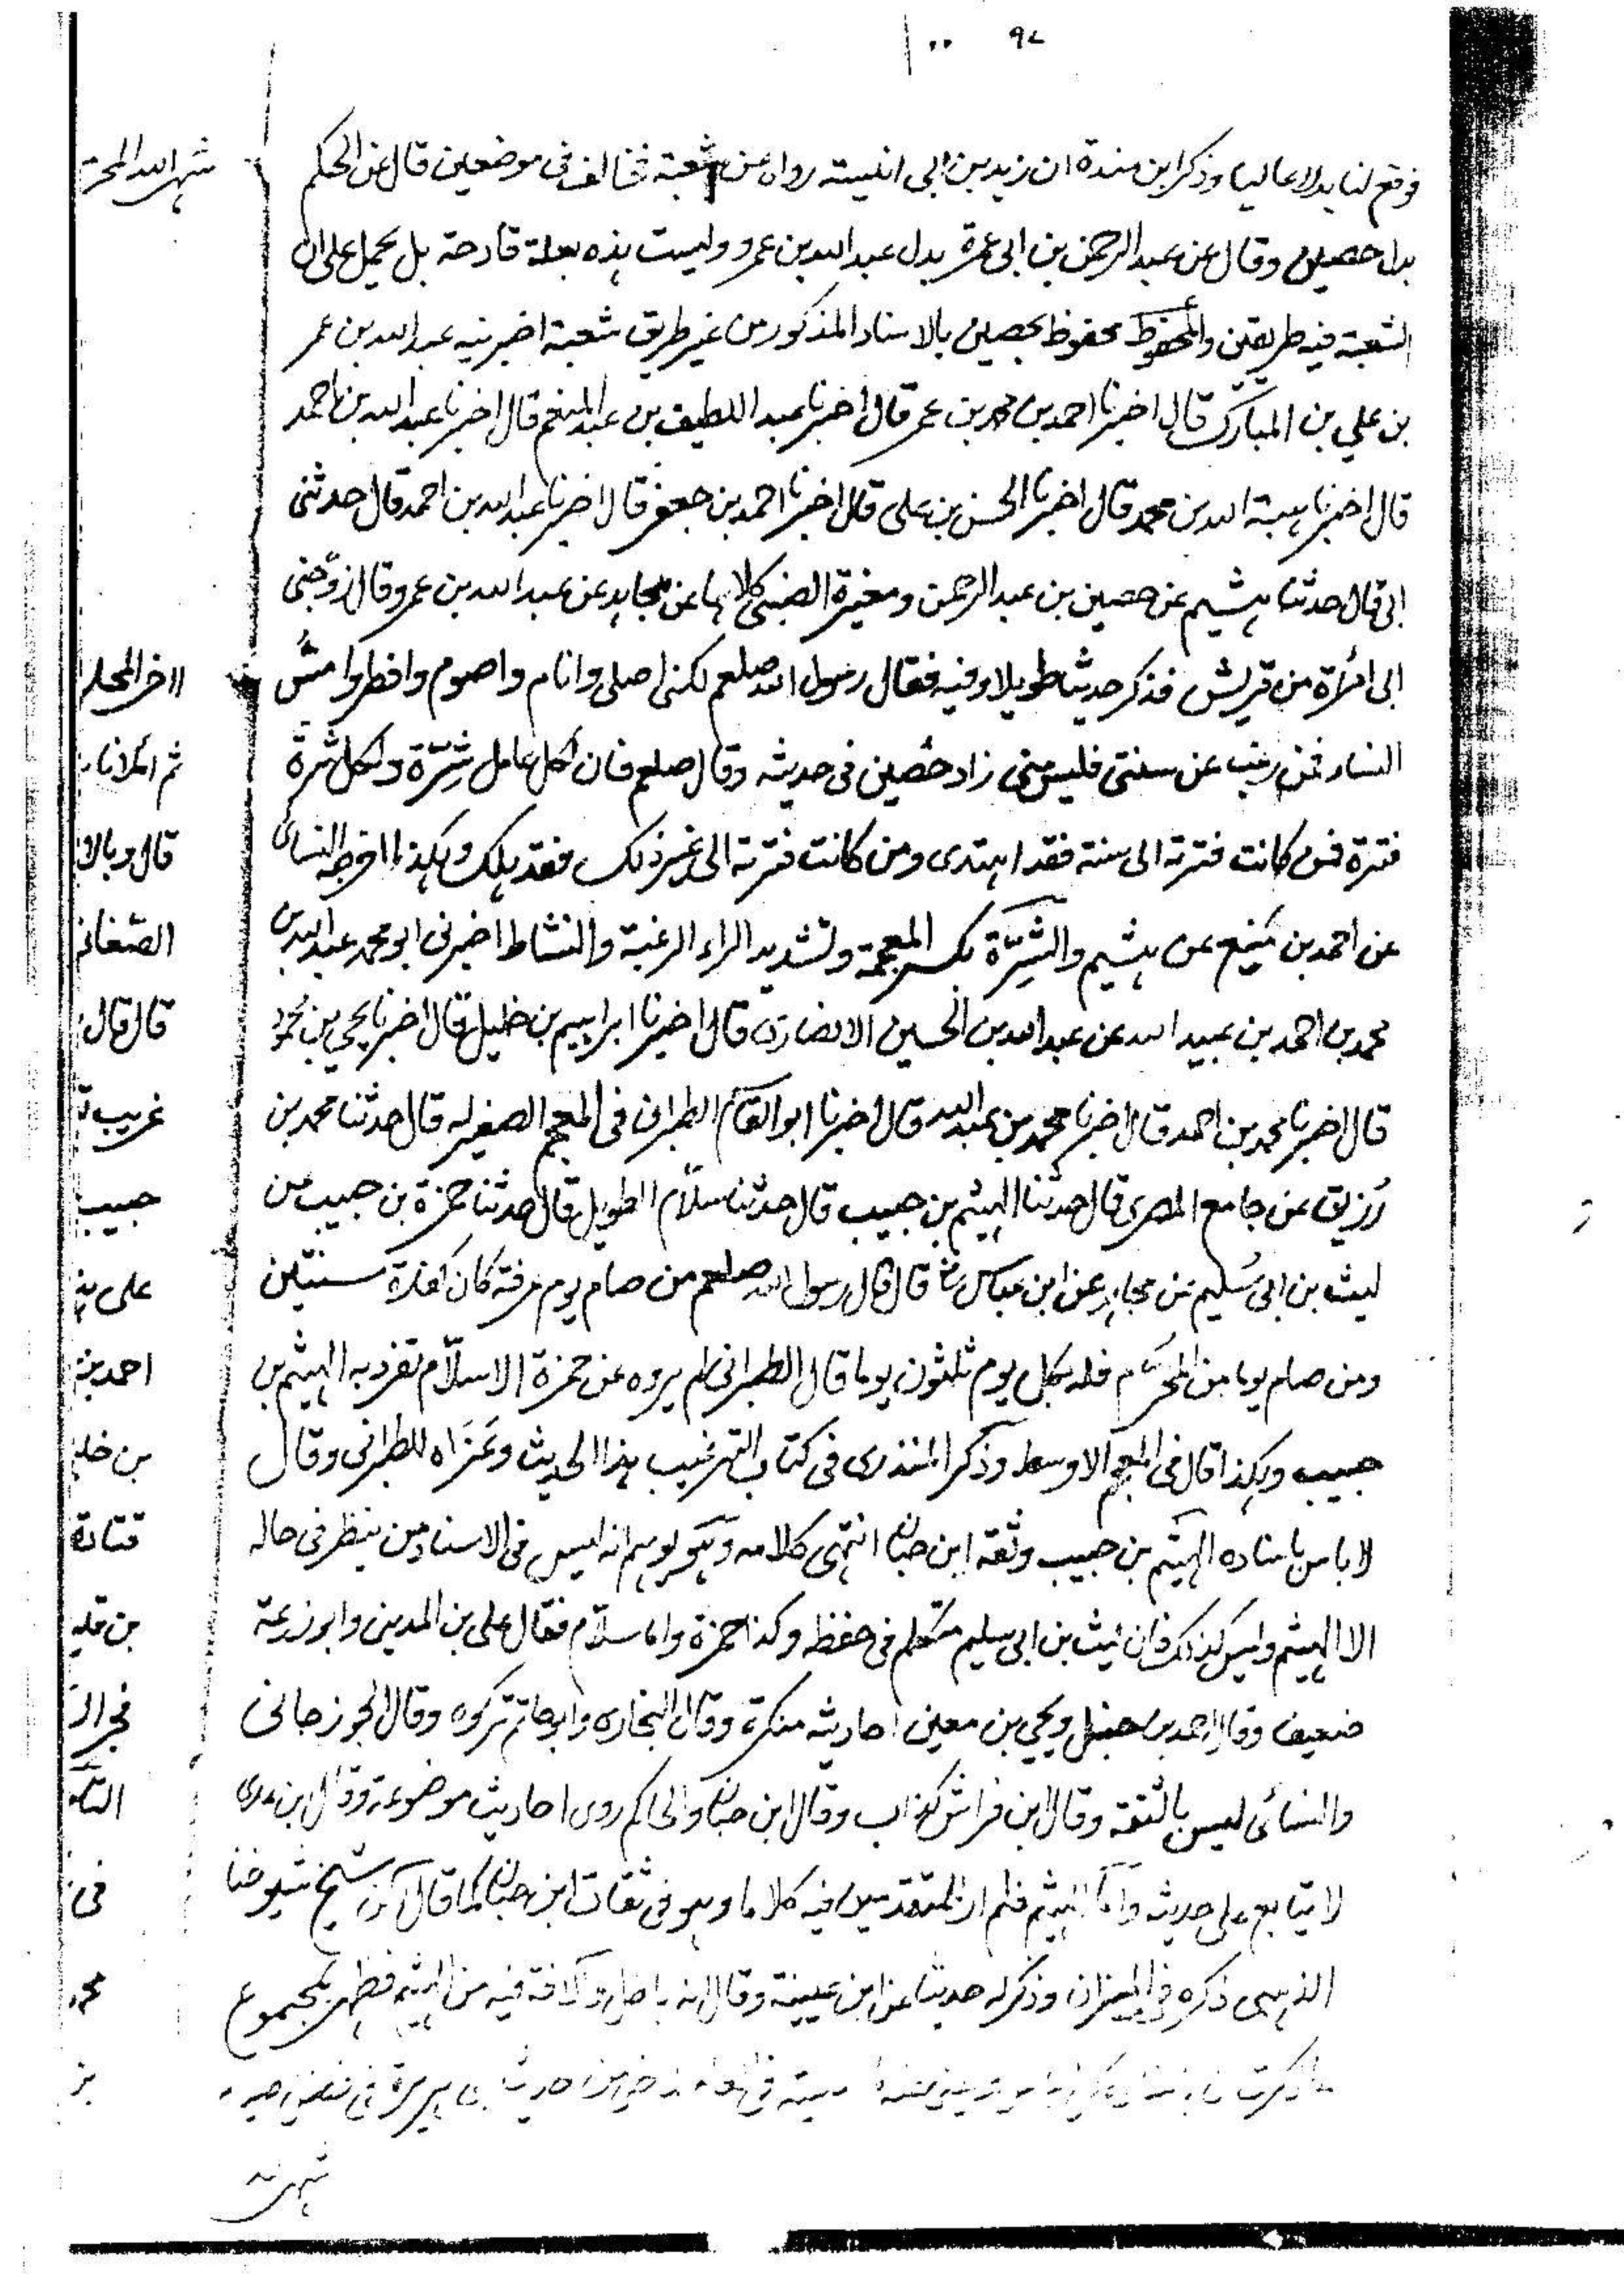 ٩٨
١٠٠
فوقع لنا بدلا عاليا وذكر ابن مندة ان زيد بن ابى انيسة رواه عن شعبة فخالف فى موضعين قال عن الحكم
بدل حصين وقال عن عبد الرحمن بن ابى عمرة بدل عبد الله بن عمرو وليست هذه بعلة قادحة بل يحمل على ان
لشعبة فيه طريقين والمحفوظ محفوظ بحصين بالاسناد المذكور من غير طريق شعبة اخبرنيه عبد الله بن عمر
بن علي بن المبارك قال اخبرنا احمد بن محمد بن عمر قال اخبرنا عبد اللطيف بن عبد المنعم قال اخبرنا عبد الله بن احمد
قال اخبرنا هبة الله بن محمد قال اخبرنا الحسن بن على قال اخبرنا احمد بن جعفر قال اخبرنا عبد الله بن احمد قال حدثنى
ابى قال حدثنا هشيم عن حصين بن عبد الرحمن ومغيرة الضبى كلاهما عن مجاهد عن عبد الله بن عمرو قال زوّجنى
ابى امرأة من قريش فذكر حديثا طويلا وفيه فقال رسول الله صلعم لكنى اصلى وانام واصوم وافطر وامسّ
النساء فمن رغب عن سنتى فليس منى زاد حُصين فى حديثه وقال صلعم فان لكل عامل شِرّة ولكل شرة
فترة فمن كانت فترته الى سنة فقد اهتدى ومن كانت فترته الى غير ذلك فقد هلك وهكذا اخرجه النسائى
عن احمد بن مَنيع عن هشيم والشِرّة بكسر المعجمة وتشديد الراء الرغبة والنشاط اخبرنى ابو محمد عبد الله بن
محمد بن احمد بن عبيد الله عن عبد الله بن الحسين الانصارى قال اخبرنا ابراهيم بن خليل قال اخبرنا يحيى بن محمود
قال اخبرنا محمد بن احمد قال اخبرنا محمد بن عبد الله قال اخبرنا ابو القاسم الطبرانى فى المعجم الصغير له قال حدثنا محمد بن
رُزيق بن جامع المصرى قال حدثنا الهيثم بن حبيب قال حدثنا سلّام الطويل قال حدثنا حمزة بن حبيب عن
ليث بن ابى سُليم عن مجاهد عن ابن عباس رض قال قال رسول الله صلعم من صام يوم عرفة كان كفارة سنتين
ومن صام يوما من المحرّم فله بكل يوم ثلثون يوما قال الطبرانى لم يروه عن حمزة الا سلّام تفرد به الهيثم بن
حبيب وهكذا قال فى المعجم الاوسط وذكر المنذرى فى كتاب الترغيب هذا الحديث وعَزَاه للطبرانى وقال
لا باس باسناده الهيثم بن حبيب وثقه ابن حبان انتهى كلامه وهو يوهم انه ليس فى الاسناد من ينظر فى حاله
الا الهيثم وليس كذلك فان ليث بن ابى سليم متكلم فى حفظه وكذا حمزة واما سلّام فقال على بن المدينى وابو زرعة
ضعيف وقال احمد بن حنبل ويحيى بن معين احاديثه منكرة وقال البخارى وابو حاتم تركوه وقال الجوزجانى
والنسائى ليس بالثقة وقال ابن خراش كذاب وقال ابن حبان والحاكم روى احاديث موضوعة وقال ابن عدى
لا يتابع على حديثه وأما الهيثم فلم ار للمتقدمين فيه كلاما وهو فى ثقات ابن حبان كما قال لكن شيخ شيوخنا
الذهبى ذكره فى الميزان وذكر له حديثا عن ابن عيينة وقال انه باطل والآفة فيه من الهيثم فظهر بمجموع
شهر الله المحر
ثم
قال وبالا
الصّغانى
قال قال
غريب
حبيب
على
احمد بن
بن
قتادة
بن
فى
محمد
شهر